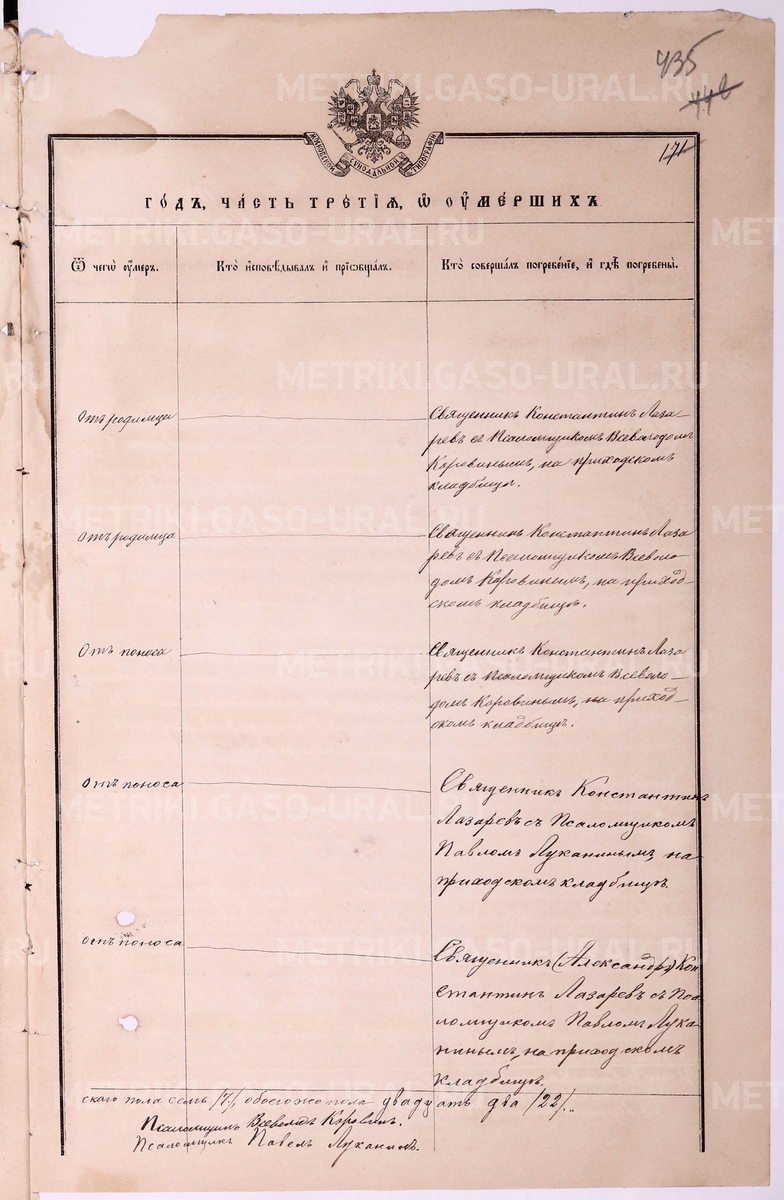 METRIKI.GASO-URAL.RU
435
442
171
МОСКОВСКОЙ СѴНОДАЛЬНОЙ ТИПОГРАФІИ
ГО́ДЪ, ЧА́СТЬ ТРЕ́ТІѦ, Ѿ ОУ҆МЕ́РШИХЪ
Ѿ чегѡ̀ оу҆́меръ.
Кто̀ и҆сповѣ́дывалъ и҆ прїѡбща́лъ.
Кто̀ соверша́лъ погребе́нїе, и҆ гдѣ̀ погребены̀.
Отъ родимца
Священникъ Константинъ Лаза-
ревъ съ Псаломщикомъ Всеволодомъ
Коровинымъ, на приходскомъ
кладбищѣ.
Отъ родимца
Священникъ Константинъ Лаза
ревъ съ Псаломщикомъ Всеволо-
домъ Коровинымъ, на приход-
скомъ кладбищѣ.
Отъ поноса
Священникъ Константинъ Лаза
ревъ съ Псаломщикомъ Всеволо-
домъ Коровинымъ, на приход-
скомъ кладбищѣ.
Отъ поноса
Священникъ Константинъ
Лазаревъ съ Псаломщикомъ
Павломъ Луканинымъ, на
приходскомъ кладбищѣ.
Отъ поноса
Священникъ (Александръ) Кон
стантинъ Лазаревъ съ Пса
ломщикомъ Павломъ Лука
нинымъ, на приходскомъ
кладбищѣ.
скаго пола семь /7/, обоего пола двадцать два /22/.
Псаломщикъ Всеволодъ Коровинъ.
Псаломщикъ Павелъ Луканинъ.